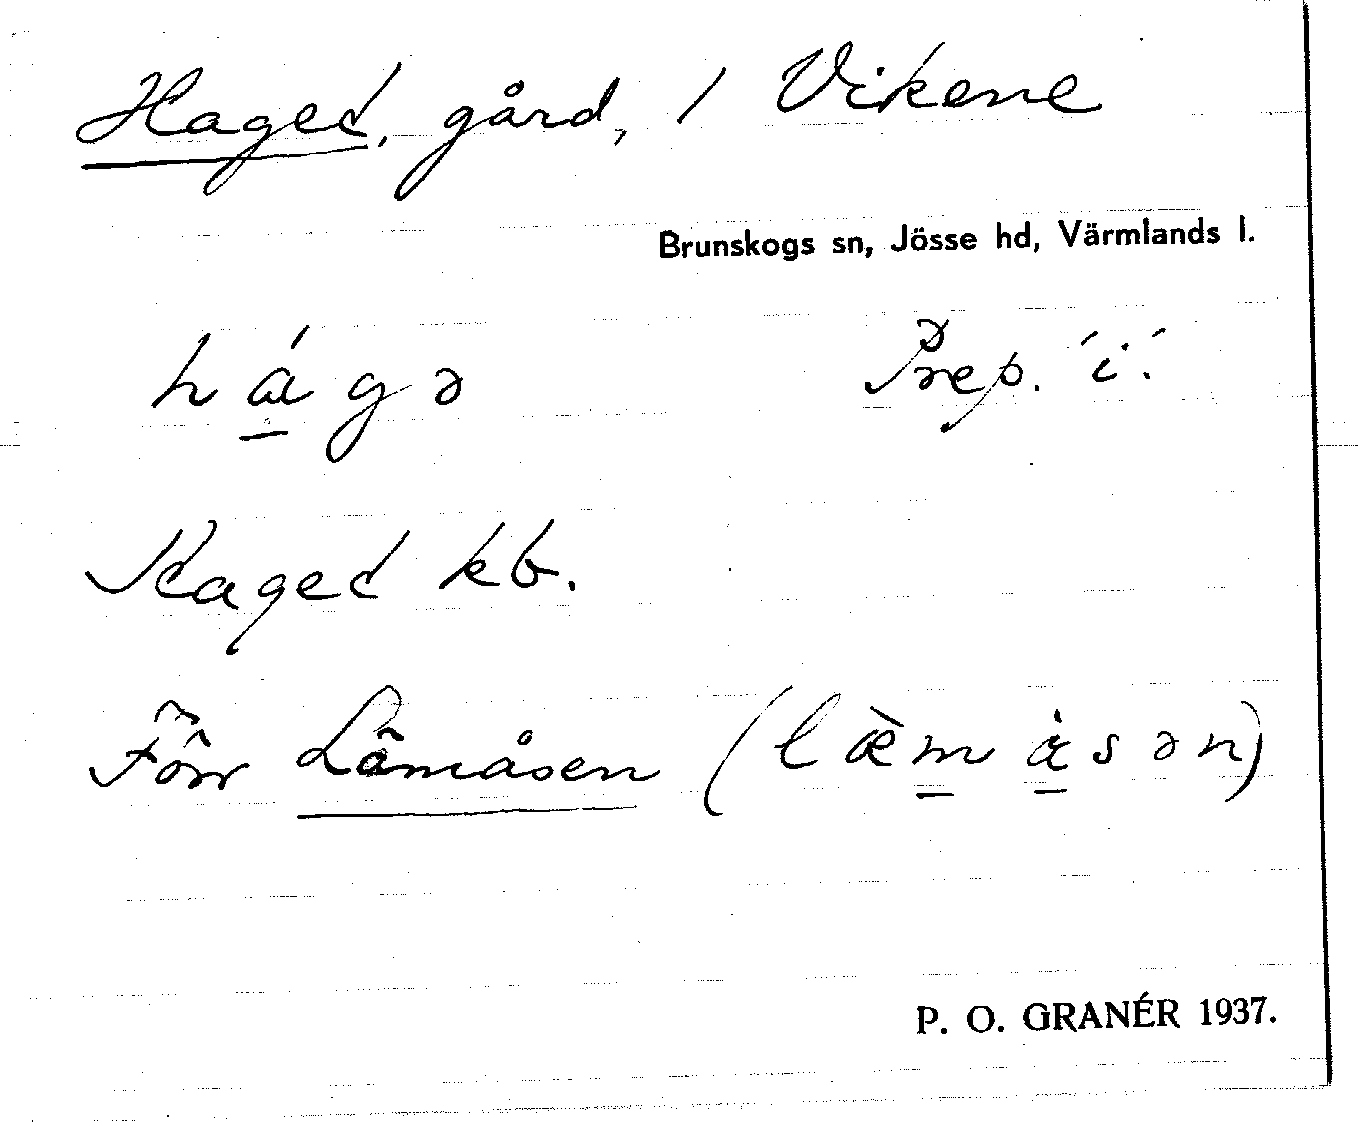 Haget, gård, 1 Vikene
Brunskogs sn, Jösse hd, Värmlands l.
há̱gə Prep. 'i'.
Haget kb.
Förr Lâmåsen (l æ̀ m å̱ s ə n)
P. O. GRANÉR 1937.